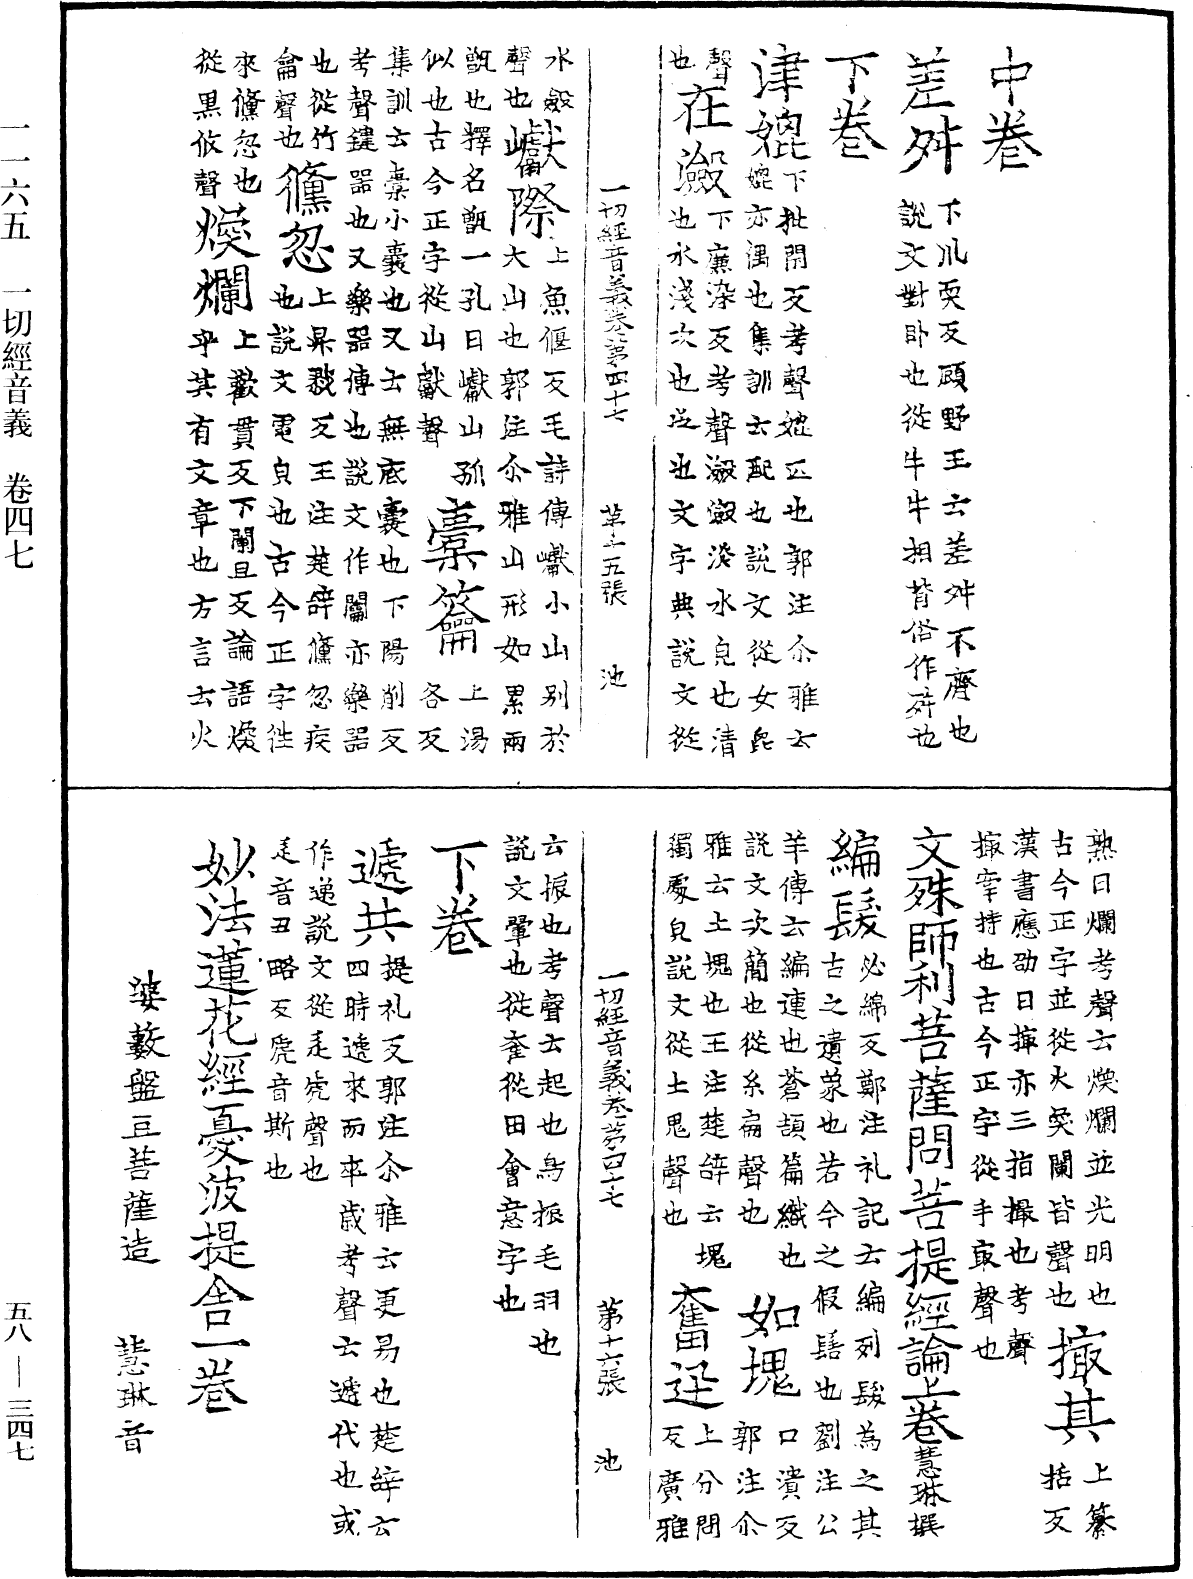 中卷
差舛 下川耎反顧野王云差舛不齊也
說文對卧也從牛牛相背俗作舛也
下卷
津媲 媲下批閇反考聲媲匹也郭注尒雅云
媲亦偶也集訓云配也說文從女毘
聲也 在澱 下廉染反考聲澱澱淺水皃也清
也水淺次也岦也文字典說文從
一切經音義卷第四十七 第十五張 池
水斂聲也 巘際 上魚偃反毛詩傳巘小山別於
大山也郭注尒雅山形如累兩
甑也釋名甑一孔曰巘山孤
似也古今正字從山獻聲 橐籥 上湯各反
集訓云橐小囊也又云無底囊也下陽削反
考聲鍵器也又樂器傳也說文作闟亦樂器
也從竹龠聲也 儵忽 上昇叕反王注楚辝儵忽疾
來儵忽也也說文電皃也古今正字從
從黒攸聲 煥爛 上歡貫反下闌旦反論語煥
乎其有文章也方言云火
熟曰爛考聲云煥爛並光明也
古今正字並從火奐闌皆聲也 撮其 上纂括反
漢書應劭曰撮亦三指撮也考聲
撮牽持也古今正字從手冣聲也
文殊師利菩薩問菩提經論上卷 慧琳撰
編髮 必綿反鄭注礼記云編列髮為之其
古之遺䝉也若今之假髻也劉注公
羊傳云編連也蒼頡篇織也
說文次簡也從糸扁聲也 如塊 口潰反郭注尒
雅云土塊也王注楚辝云塊
獨處皃說文從土鬼聲也 奮迅 上分問反廣雅
一切經音義卷第四十七 第十六張 池
云振也考聲云起也鳥振毛羽也
說文翬也從奞從田會意字也
下卷
遞共 提礼反郭注尒雅云更易也楚辝云
四時遞來而卒歳考聲云遞代也或
作递說文從辵虒聲也
辵音丑略反虒音斯也
妙法蓮花經憂波提舍一卷
婆藪盤豆菩薩造 慧琳音
一一六五 一切經音義 卷四七
五八—三四七